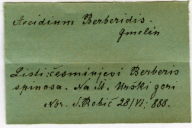 Aecidium Berberidis.
Gmelin
Listi češminjevi Berberis
spinosa. Na M. Uroški gori
Nov. S. Robič 28/VI. 888.